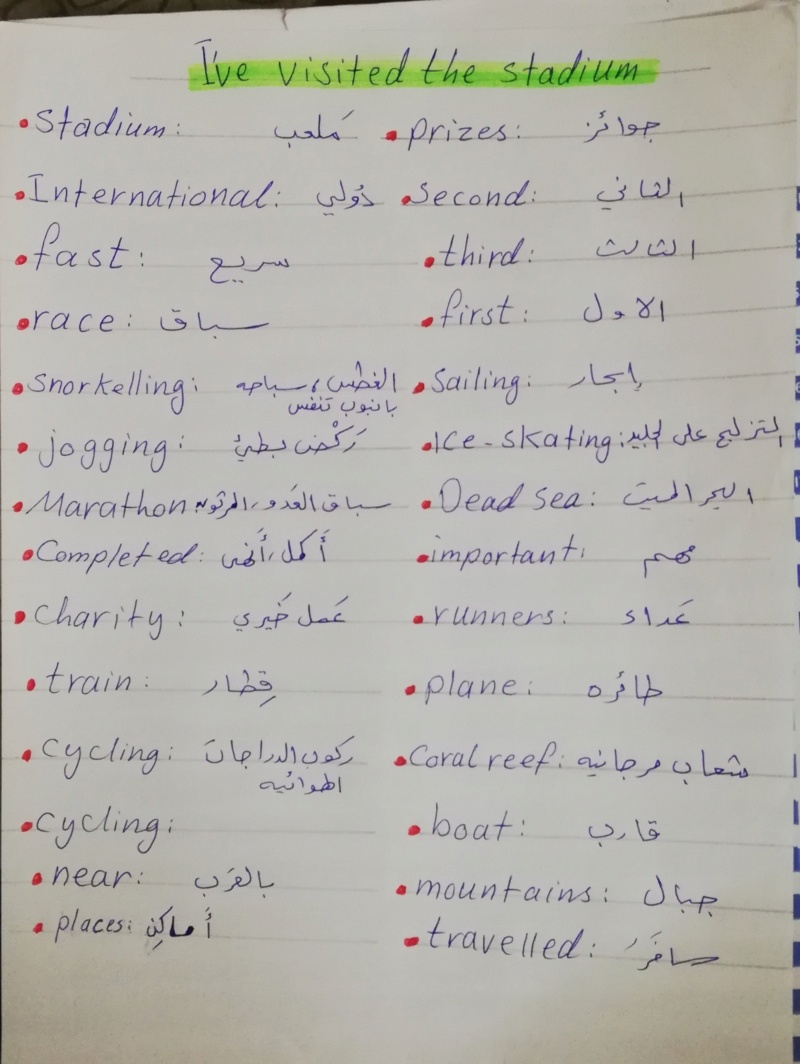 I've visited the stadium
• Stadium: مَلعب
• International: دُولي
• fast: سريع
• race: سباق
• Snorkelling: الغطس، سباحه
بانبوب تنفس
• jogging: رَكْض بطيئ
• Marathon: سباق العَدو،
• Completed: أَكمل، أَنهى
• Charity: عَمل خَيري
• train: قِطار
• Cycling: ركوب الدراجات
الهوائيه
• cycling:
• near: بالقرَب
• places: أَماكِن
• prizes: جوائز
• Second: الثاني
• third: الثالث
• first: الاول
• Sailing: إبحار
• Ice-skating: التزلج على الجليد
• Dead sea: البحر الميت
• important: مهم
• runners: عَداء
• plane: طائره
• Coral reef: شعاب مرجانيه
• boat: قارب
• mountains: جبال
• travelled: سافَرَ